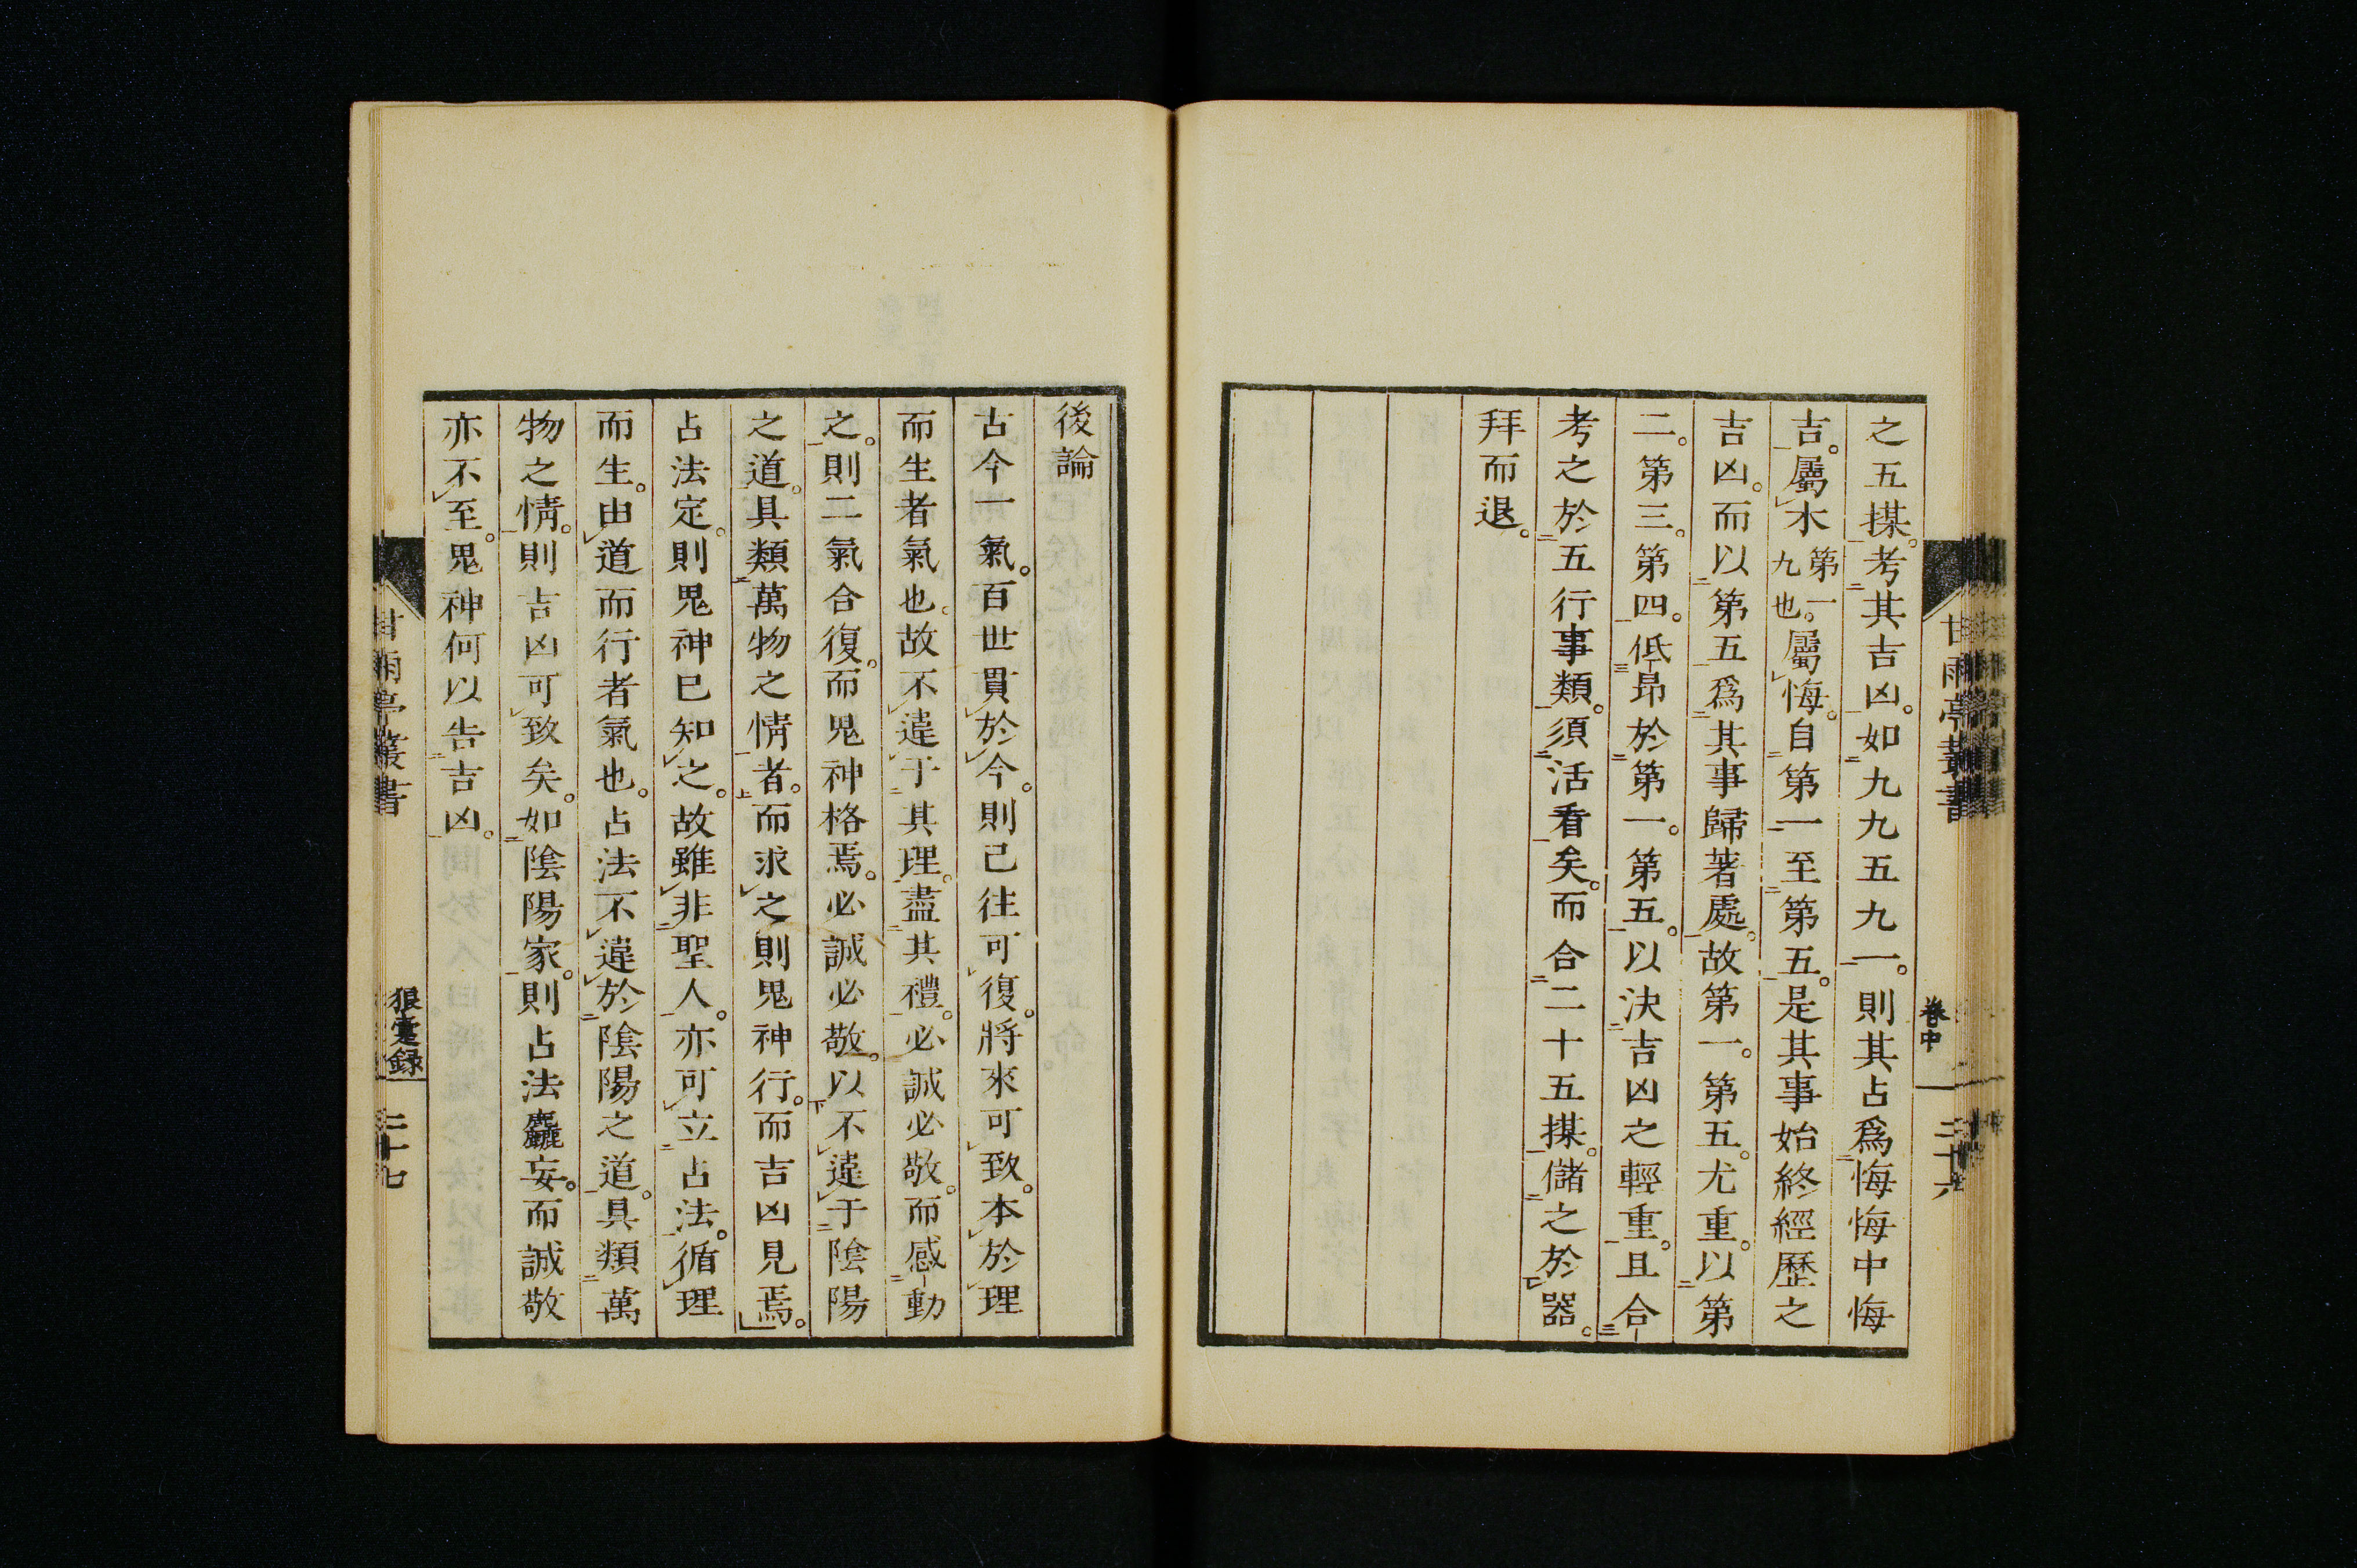 之五揲。考其吉凶。如九九五九一。則其占爲悔悔中悔
吉。屬木第一九也。屬悔。自第一至第五。是其事始終經歷之
吉凶。而以第五爲其事歸著處。故第一。第五。尤重。以第
二。第三。第四。低昻於第一。第五。以決吉凶之輕重。且合
考之於五行事類。須活看矣。而合二十五揲。儲之於器。
拜而退。
甘雨亭叢書
卷中
二十六
後論
古今一氣。百世貫於今。則已往可復。將來可致。本於理
而生者氣也。故不違于其理。盡其禮。必誠必敬。而感動
之。則二氣合復。而鬼神格焉。必誠必敬。以不違于陰陽
之道。具類萬物之情者。而求之則鬼神行。而吉凶見焉。
占法定。則鬼神已知之。故雖非聖人。亦可立占法。循理
而生。由道而行者氣也。占法不違於陰陽之道。具類萬
物之情。則吉凶可致矣。如陰陽家。則占法麤妄。而誠敬
亦不至。鬼神何以告吉凶。
甘雨亭叢書
狼疐録
二十七